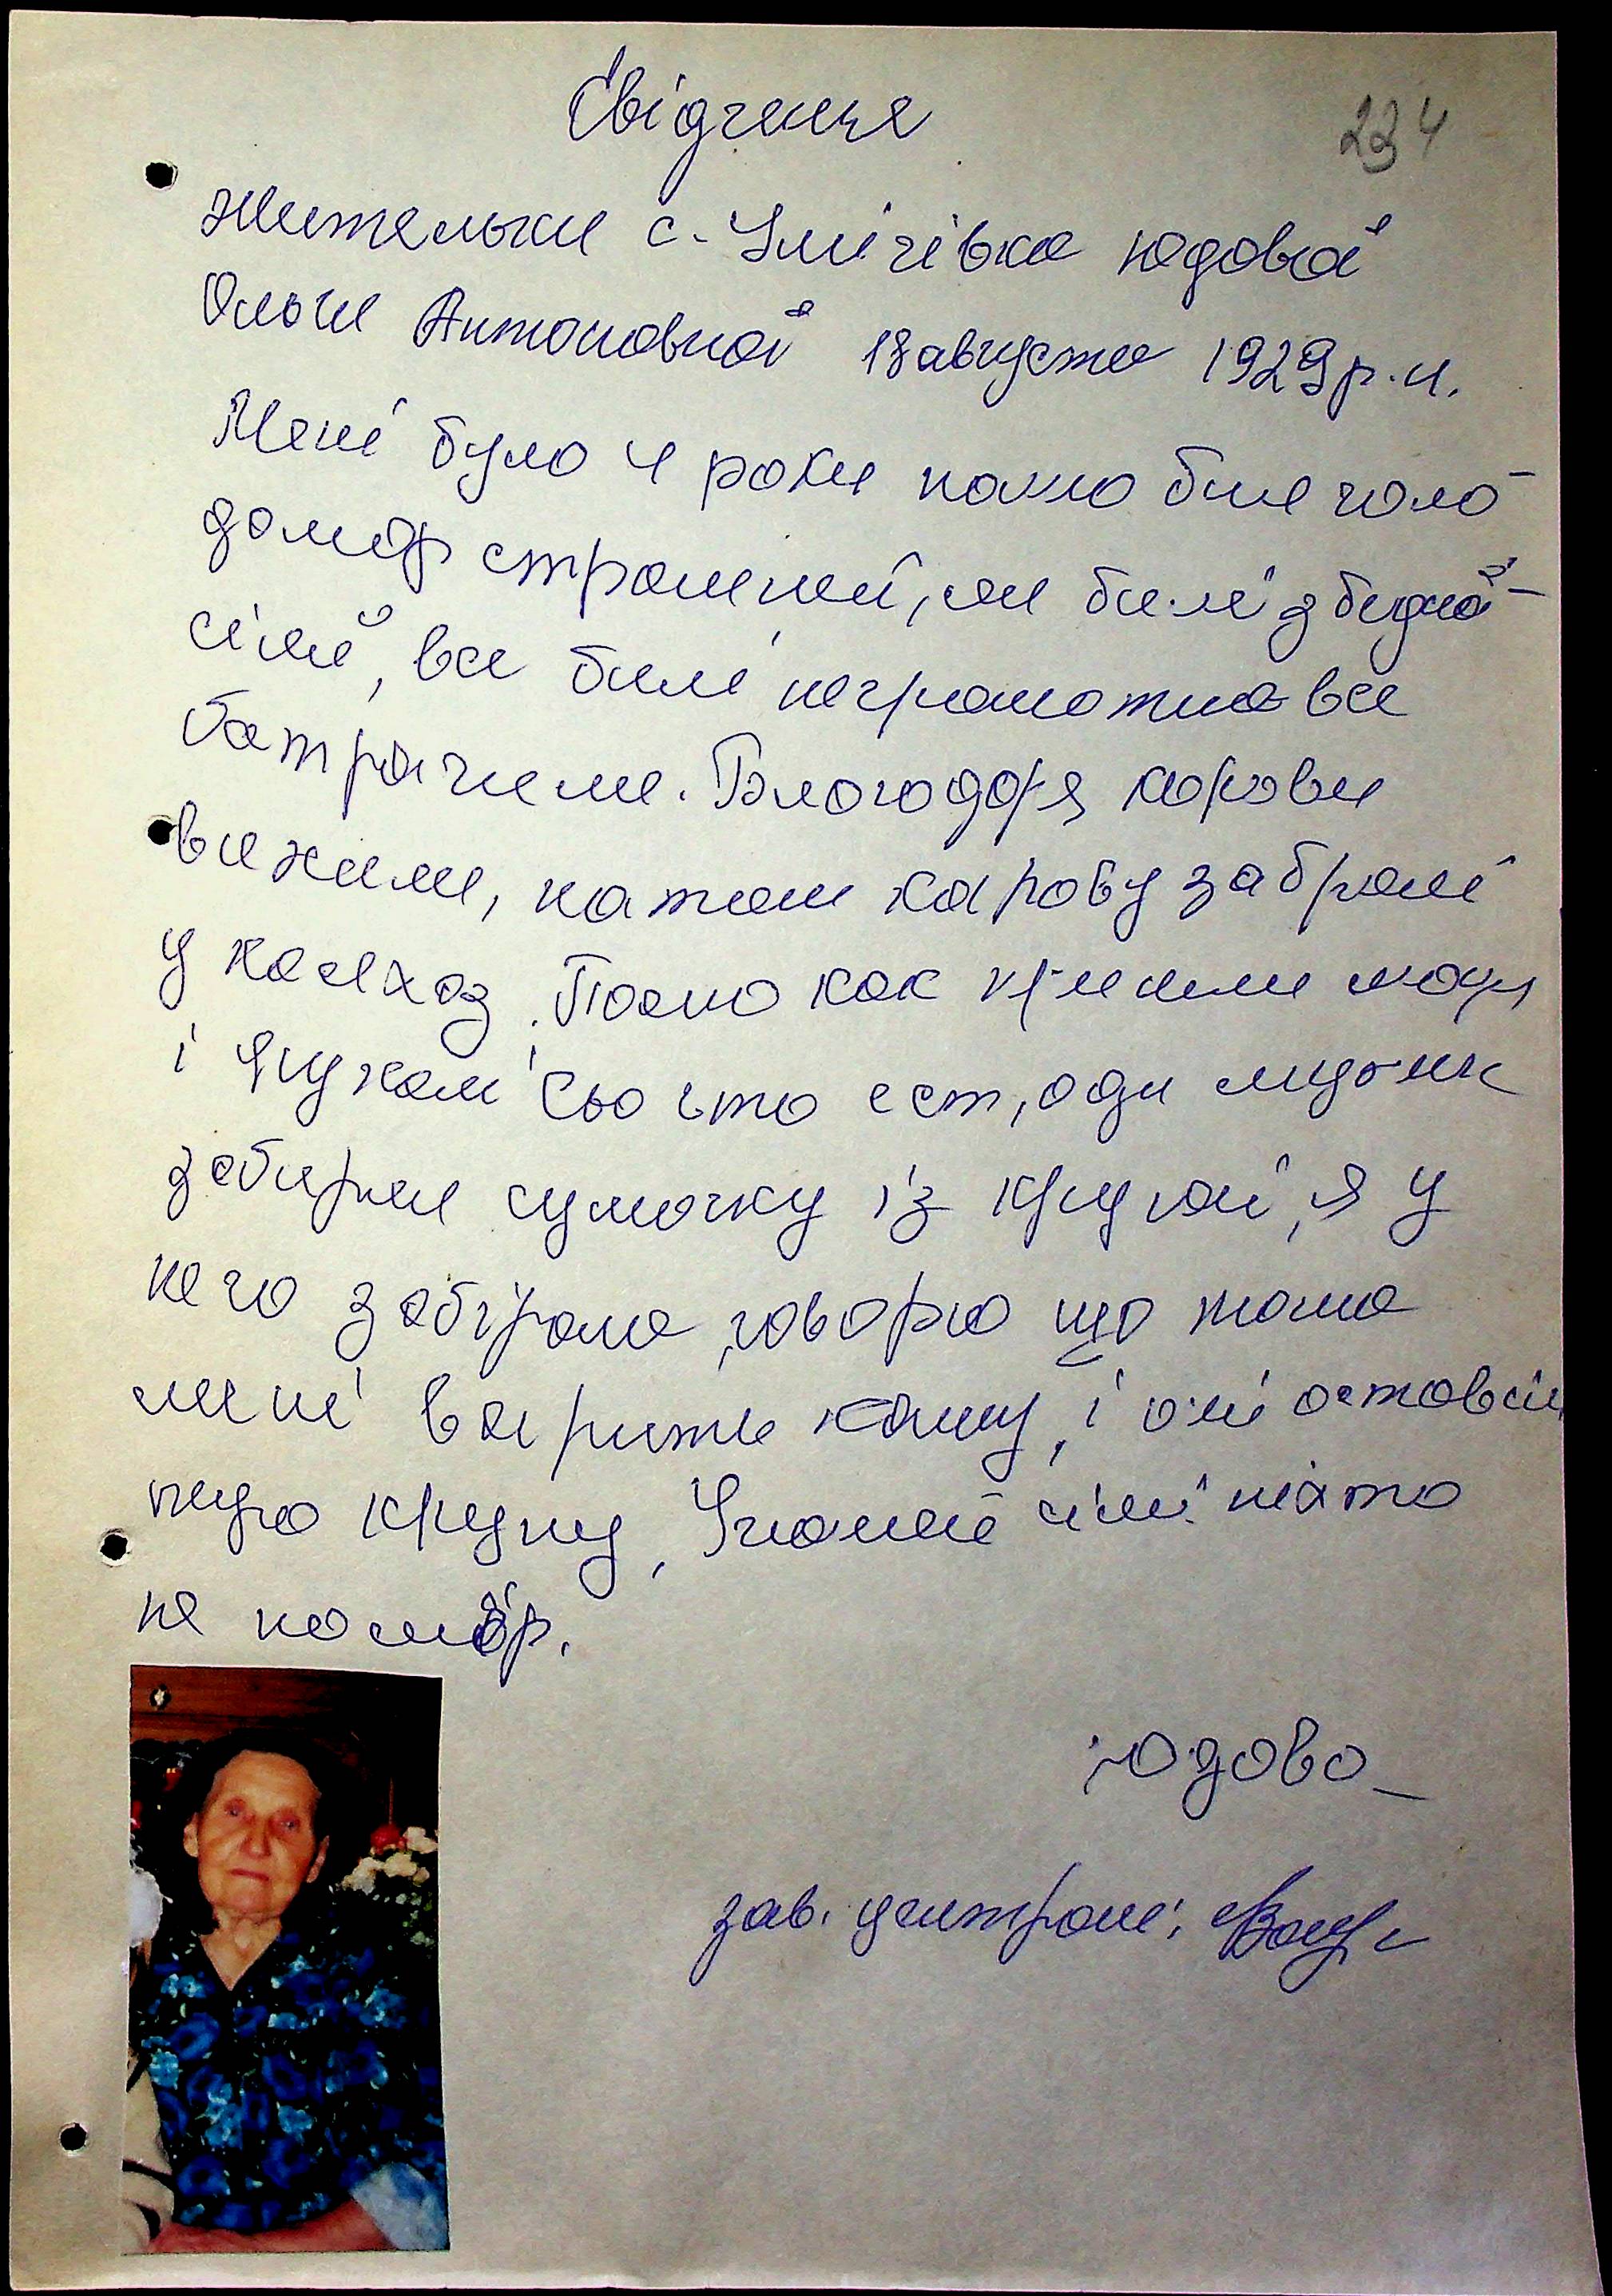 Свідчення
234
жительки с. Умічівка Юдової
Ольги Антоновной 18 августа 1929 р.н.
Мені було 4 роки помю бив голо-
домор страшний, ми билі з бидной
сімї, все билі неграмотна все
батрачили. Благодоря корови
вижили, потом карову забралі
у колхоз. Помю как прийшли люди
і шукалі сьо што ест, оди мущик
забирав сумочку із крупой, я у
него забірала, говорю що мама
мені варить кашу, і оні оставілі
тую крупу, У нашей сімї ніхто
не помер.
Юдова
зав. централі: